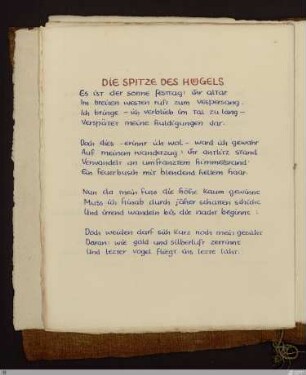 DIE SPITZE DES HÜGELS
Es ist der sonne festtag: ihr altar
Im breiten westen ruft zum vespersang.
Ich bringe – ich verblieb im tal zu lang –
Verspätet meine huldigungen dar.
Doch dies – erinnr ich wol – ward ich gewahr
Auf meinem wanderzug: ihr antlitz stand
Verwandelt an umfranztem himmelsbrand
Ein feuerbusch mit blendend hellem haar.
Nun da mein fuss die höhe kaum gewinnt
Muss ich hinab durch jäher schatten schicht
Und irrend wandeln bis die nacht beginnt:
Doch weiden darf sich kurz noch mein gesicht
Daran: wie gold und silberluft zerrinnt
Und lezter vogel fliegt ins lezte licht.